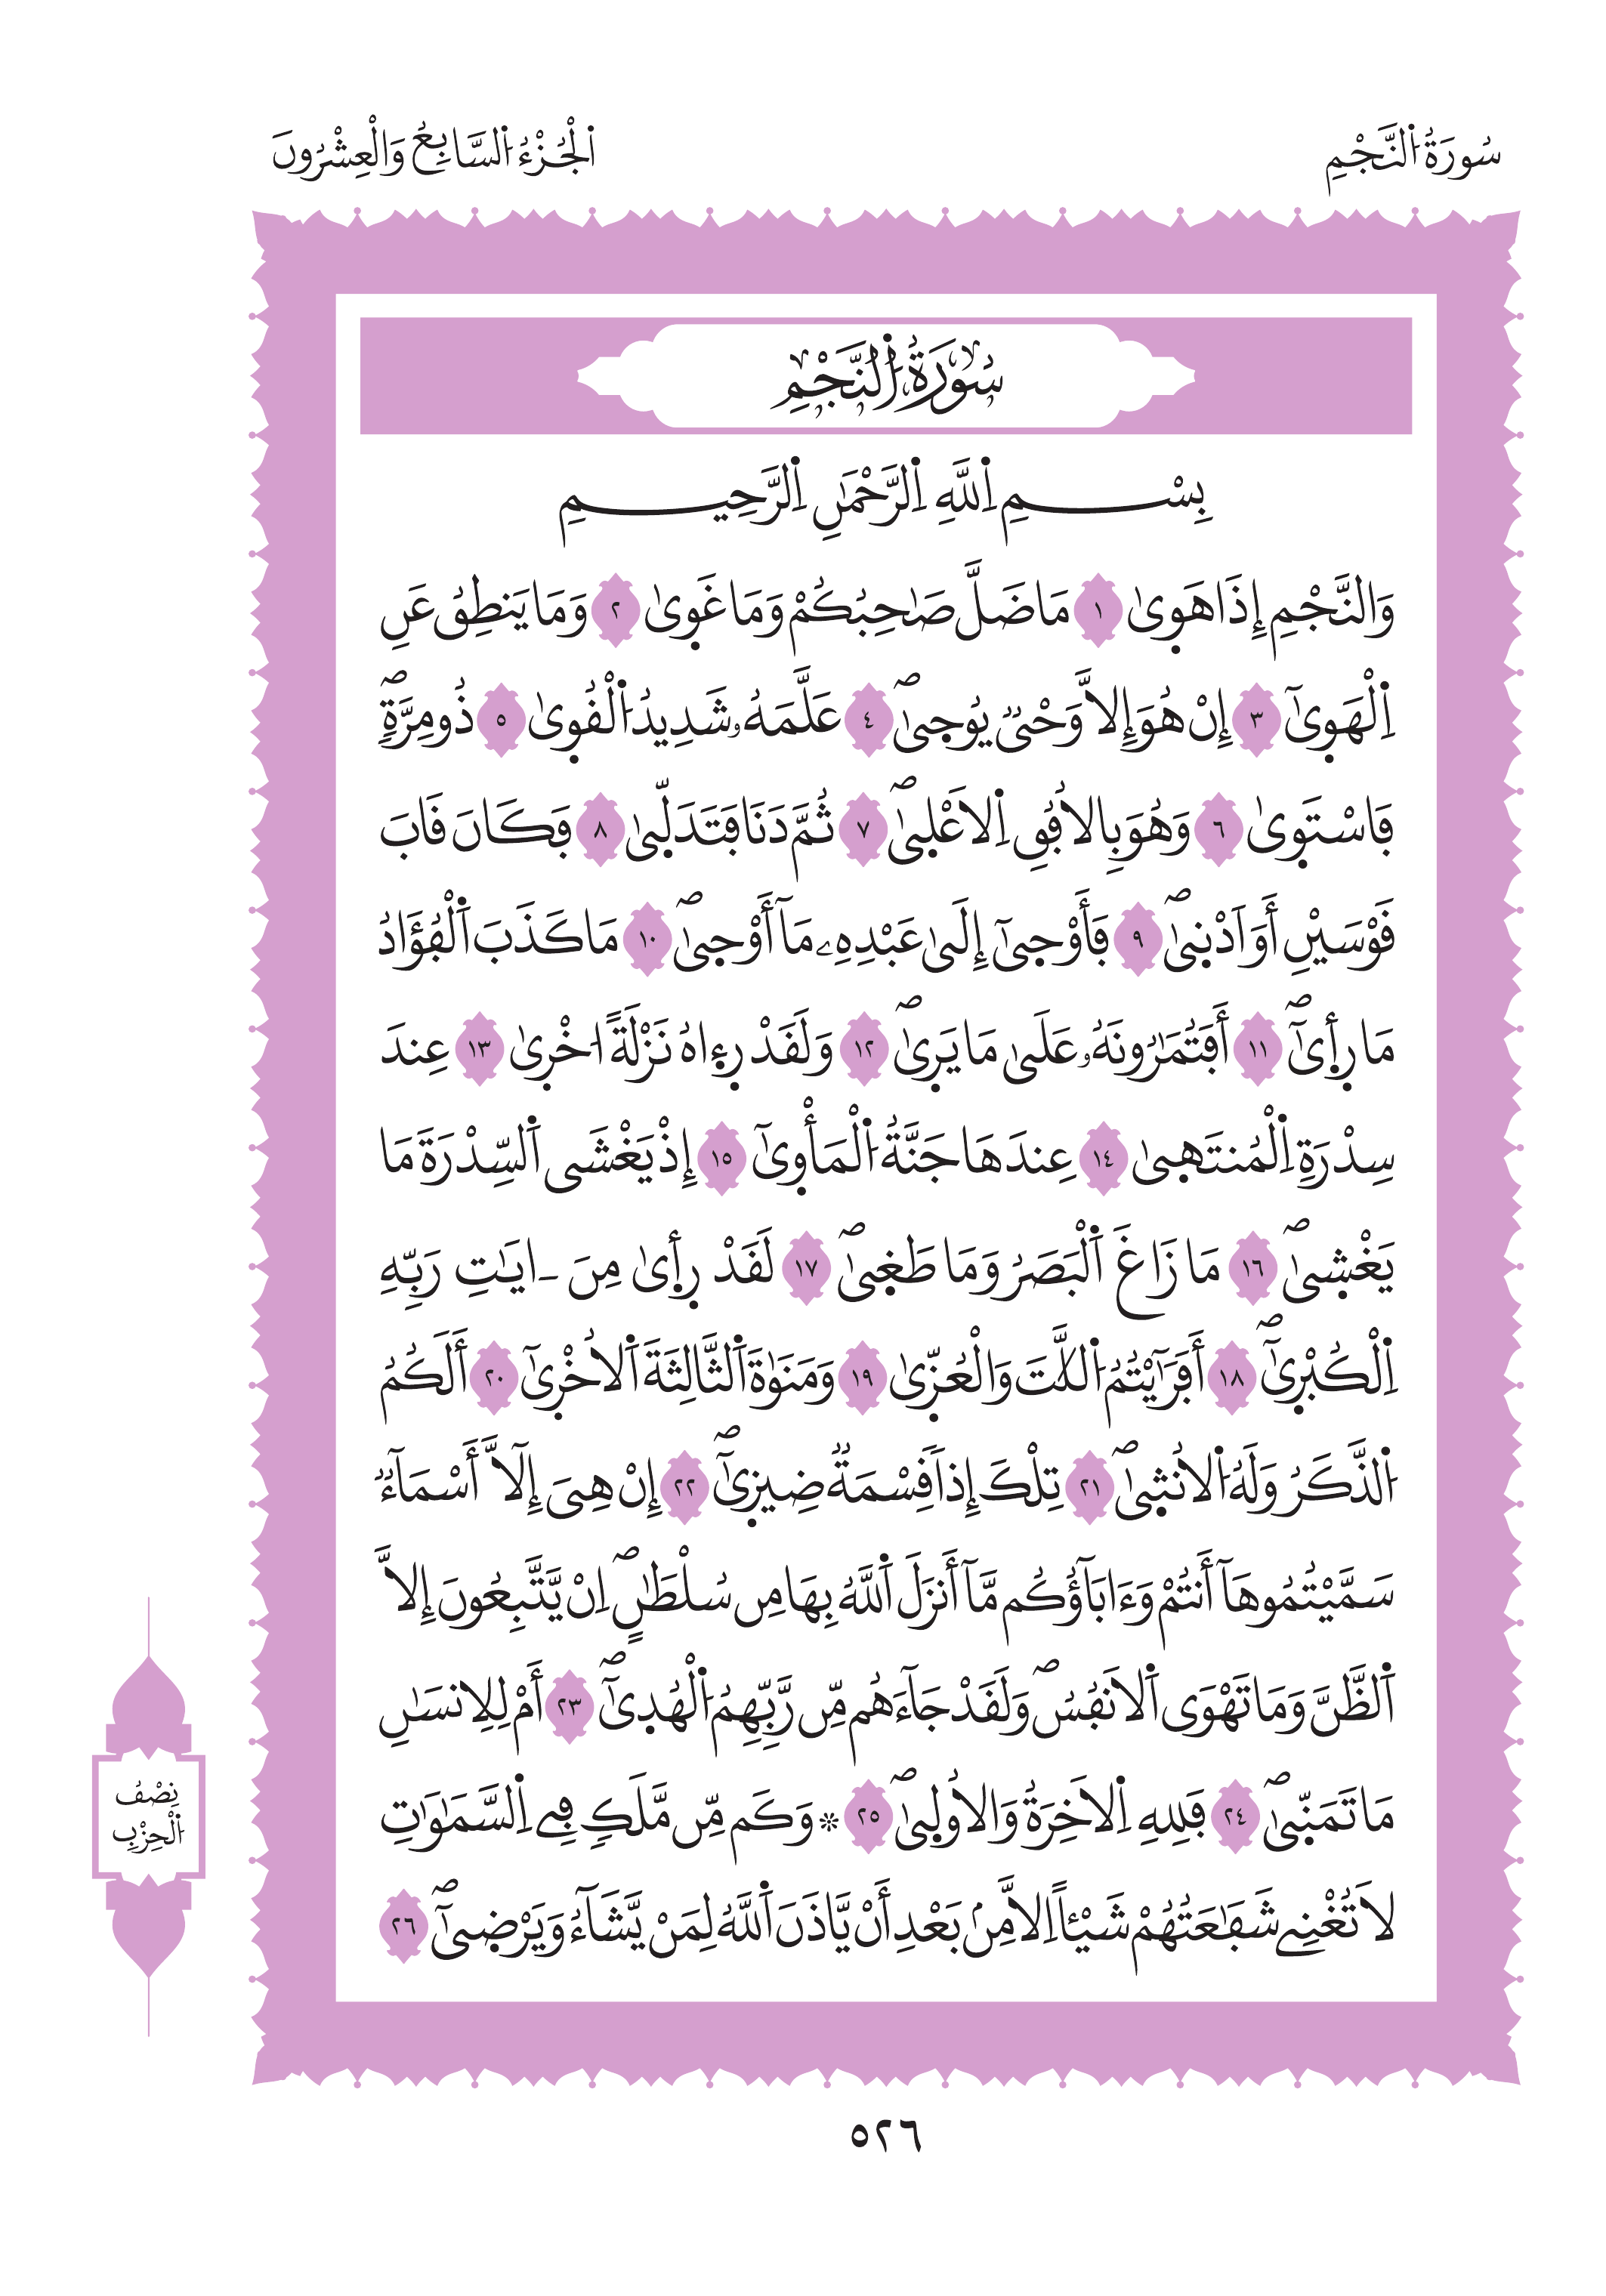 سُورَةُ اُ۬لنَّجْمِ
اَ۬لْجُزْءُ اُ۬لسَّابِعُ وَالْعِشْرُونَ
سُورَةُ اُ۬لنَّجْمِ
بِسْمِ اِ۬للَّهِ اِ۬لرَّحْمَٰنِ اِ۬لرَّحِيمِ
وَالنَّجْمِ إِذَا هَو۪يٰ ١ مَا ضَلَّ صَٰحِبُكُمْ وَمَا غَو۪يٰ ٢ وَمَا يَنطِقُ عَنِ
اِ۬لْهَو۪يٰٓ ٣ إِنْ هُوَ إِلَّا وَحْيٞ يُوح۪يٰۖ ٤ عَلَّمَهُۥ شَدِيدُ اُ۬لْقُو۪يٰ ٥ ذُو مِرَّةٖۖ
فَاسْتَو۪يٰ ٦ وَهُوَ بِالُافُقِ اِ۬لَاعْل۪يٰۖ ٧ ثُمَّ دَنَا فَتَدَلّ۪يٰ ٨ فَكَانَ قَابَ
قَوْسَيْنِ أَوَ اَدْن۪يٰۖ ٩ فَأَوْح۪يٰٓ إِلَيٰ عَبْدِهِۦ مَآ أَوْح۪يٰۖ ١٠ مَا كَذَبَ اَ۬لْفُؤَادُ
مَا ر۪أ۪يٰٓۖ ١١ أَفَتُمَٰرُونَهُۥ عَلَيٰ مَا يَر۪يٰۖ ١٢ وَلَقَدْ ر۪ء۪اهُ نَزْلَةً ا۟خْر۪يٰ ١٣ عِندَ
سِدْرَةِ اِ۬لْمُنتَه۪يٰ ١٤ عِندَهَا جَنَّةُ اُ۬لْمَأْو۪يٰٓ ١٥ إِذْ يَغْشَي اَ۬لسِّدْرَةَ مَا
يَغْش۪يٰۖ ١٦ مَا زَاغَ اَ۬لْبَصَرُ وَمَا طَغ۪يٰۖ ١٧ لَقَدْ ر۪أ۪يٰ مِنَ ـ۬ايَٰتِ رَبِّهِ
اِ۬لْكُبْر۪يٰٓۖ ١٨ أَفَرَٰٓيْتُمُ اُ۬للَّٰتَ وَالْعُزّ۪يٰ ١٩ وَمَنَوٰةَ اَ۬لثَّالِثَةَ اَ۬لُاخْر۪يٰٓ ٢٠ أَلَكُمُ
اُ۬لذَّكَرُ وَلَهُ اُ۬لُانث۪يٰۖ ٢١ تِلْكَ إِذاٗ قِسْمَةٞ ضِيز۪يٰٓۖ ٢٢ إِنْ هِيَ إِلَّآ أَسْمَآءٞ
سَمَّيْتُمُوهَآ أَنتُمْ وَءَابَآؤُكُم مَّآ أَنزَلَ اَ۬للَّهُ بِهَا مِن سُلْطَٰنٍۖ اِنْ يَّتَّبِعُونَ إِلَّا
اَ۬لظَّنَّ وَمَا تَهْوَي اَ۬لَانفُسُۖ وَلَقَدْ جَآءَهُم مِّن رَّبِّهِمُ اُ۬لْهُد۪يٰٓۖ ٢٣ أَمْ لِلِانسَٰنِ
مَا تَمَنّ۪يٰۖ ٢٤ فَلِلهِ اِ۬لَاخِرَةُ وَالُاول۪يٰۖ ٢٥ ۞ وَكَم مِّن مَّلَكٖ فِے اِ۬لسَّمَٰوَٰتِ
لَا تُغْنِے شَفَٰعَتُهُمْ شَيْـٔاً اِلَّا مِنۢ بَعْدِ أَنْ يَّاذَنَ اَ۬للَّهُ لِمَنْ يَّشَآءُ وَيَرْض۪يٰٓۖ ٢٦
نِصْفُ
اُ۬لْحِزْبِ
٥٢٦